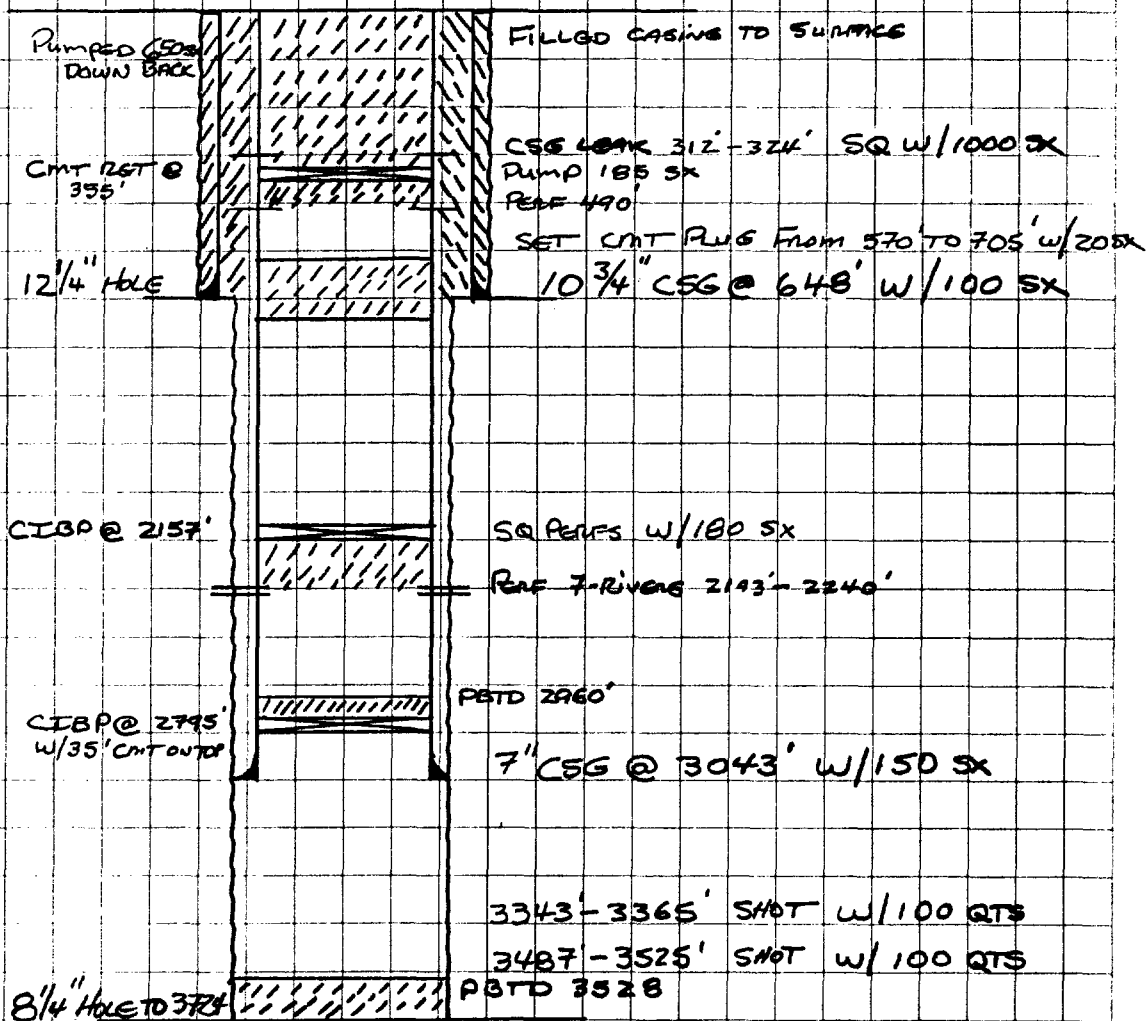 FILLED CASING TO SURFACE
PUMPED 650sx
DOWN BACK
CSG LEAK 312'-324' SQ W/1000 SX
CMT RET @
355'
PUMP 185 SX
PERF 490'
SET CMT PLUG FROM 570' TO 705' W/20SX
12 1/4" HOLE
10 3/4" CSG @ 648' W/100 SX
CIBP @ 2157'
SQ PERFS W/180 SX
PERF 7-RIVERS 2193'-2240'
PBTD 2960'
CIBP @ 2795'
W/35' CMT ON TOP
7" CSG @ 3043' W/150 SX
3343'-3365' SHOT W/100 QTS
3487'-3525' SHOT W/100 QTS
PBTD 3528
8 1/4" HOLE TO 3724